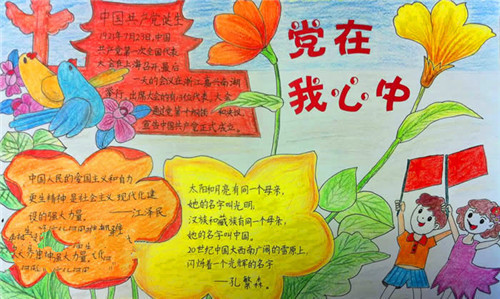 党在
我心中
中国共产党诞生
1921年7月23日,中国
共产党第一次全国代表
大会在上海召开,最后
一天的会议在浙江嘉兴南湖
举行,出席大会的有13位代表,大会
通过党第十纲领
宣告中国共产党正式成立。
中国人民的爱国主义和自力
更生精神是社会主义现代化建
设的强大力量。
——江泽民
太阳和月亮有同一个母亲,
她的名字叫光明,
汉族和藏族有同一个母亲,
她的名字叫中国。
20世纪中国大西南广阔的雪原上,
闪烁着一个光辉的名字
——孔繁森。